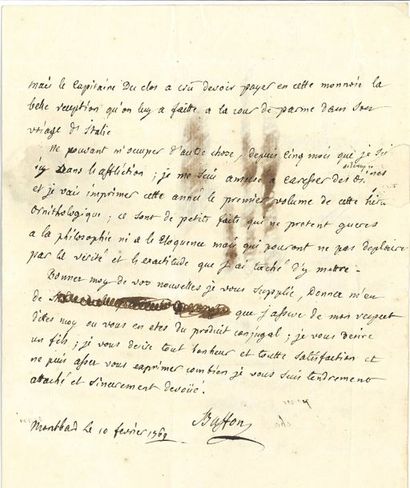 mais le Capitaine Du clos a cru devoir payer en cette monnoie la
belle reception qu'on luy a faitte a la cour de parme dans son
voiage d'Italie
ne pouvant m'occuper d'autre chose, depuis cinq mois que je suis
icy dans le affliction; je me suis amusé a caresser des
et je vais imprimer cette année le premier volume de cette
ornithologique; ce sont de petits faits qui ne pretent gueres
a la philosophie ni a le Eloquence mais qui pouront ne pas deplaire
par la verité et le exactitude que j'ai taché d'y mettre.
Donnez moy de vos nouvelles je vous supplie, donnez m'en
de que j'assure de mon respect
dites moy ou vous en etes du produit conjugal; je vous desire
un fils; je vous desire tout bonheur et toutte satisfaction et
ne puis assez vous exprimer combien je vous suis tendrement
attaché et sincerement devoüé.
Buffon
Montbard le 10 fevrier 1769